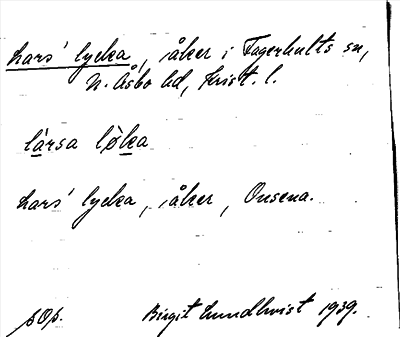 Lars' lycka, åker i Fagerhults sn,
N. Åsbo hd, Krist. l.
làrsa lø̀ka
Lars' lycka, åker, Onsena.
sOp. Birgit Lundkvist 1939.